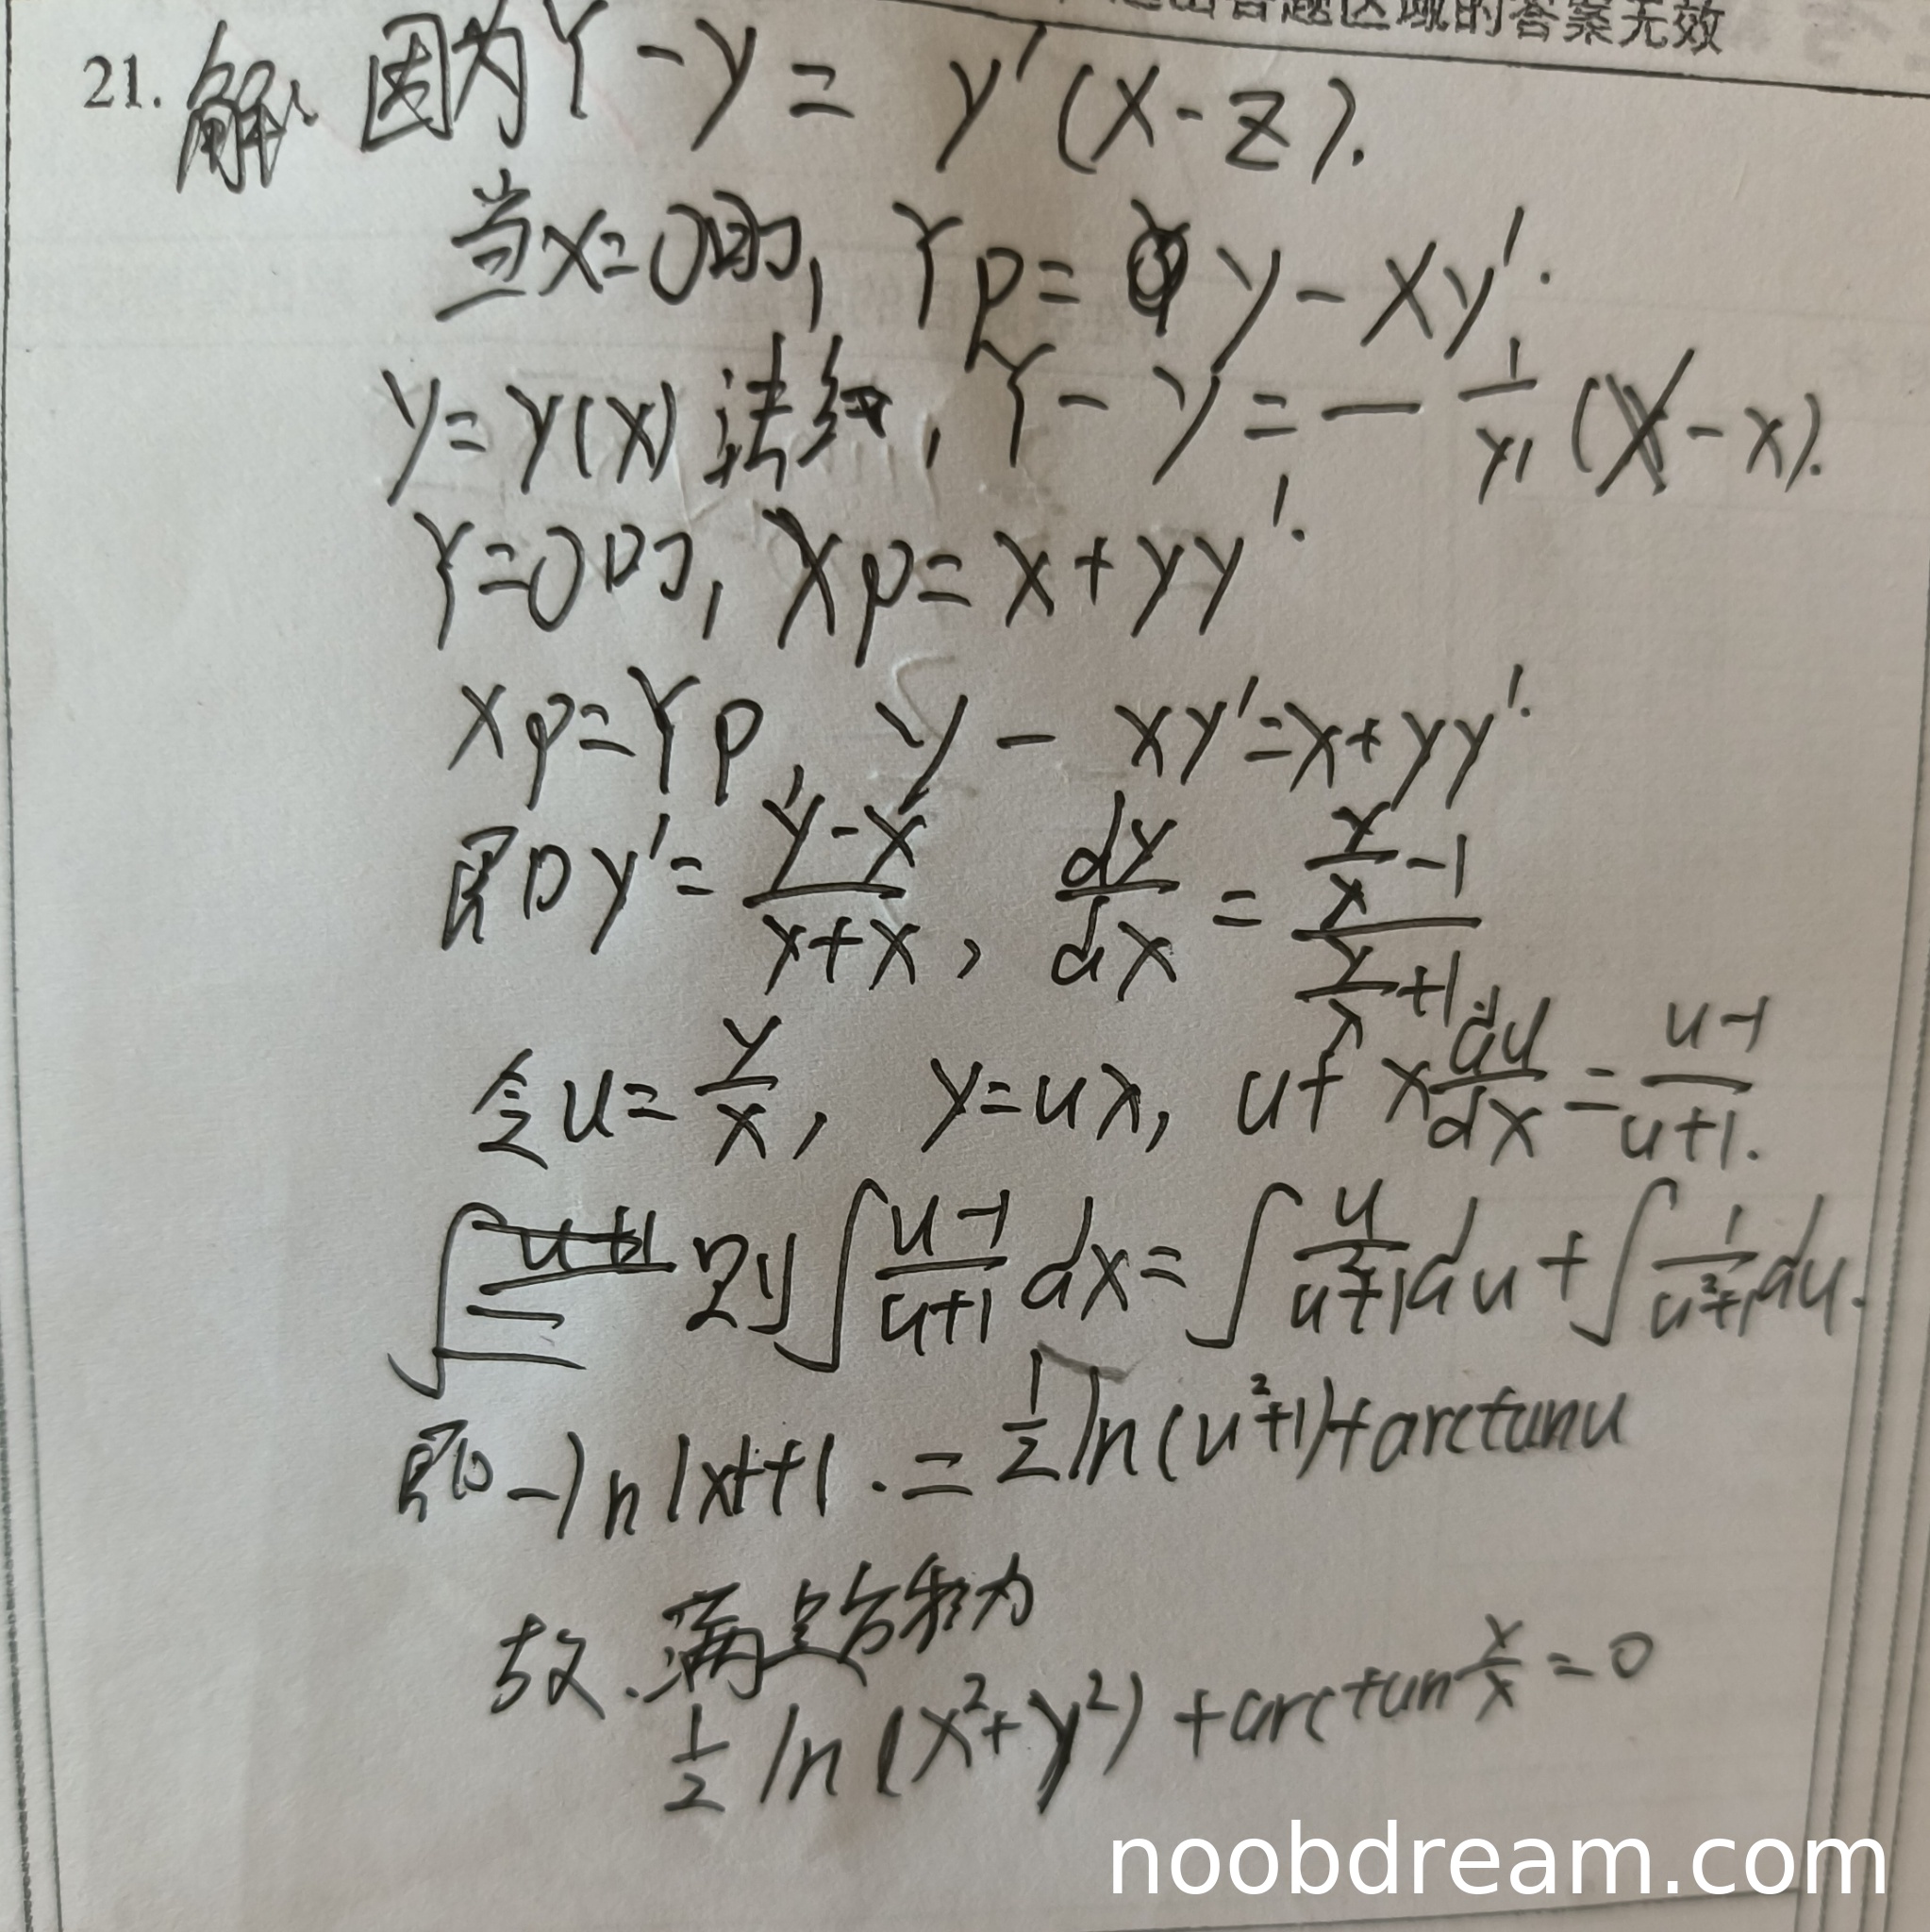 超出答题区域的答案无效
21. 解: 因为 Y - y = y'(X - z).
当x=0时, Yp = y - xy'.
y = y(x) 法线, Y - y = - 1/y' (X - x).
Y=0时, Xp = x + yy'.
Xp = Yp, y - xy' = x + yy'.
即 y' = (y-x)/(y+x), dy/dx = (y/x - 1)/(y/x + 1)
令 u = y/x, y = ux, u + x du/dx = (u-1)/(u+1).
则 ∫ (u-1)/(u+1) dx = ∫ u/(u²+1) du + ∫ 1/(u²+1) du.
即 -ln|x|+1. = 1/2 ln(u²+1)+arctanu
故.满足方程为
1/2 ln(x²+y²) + arctan y/x = 0
noobdream.com